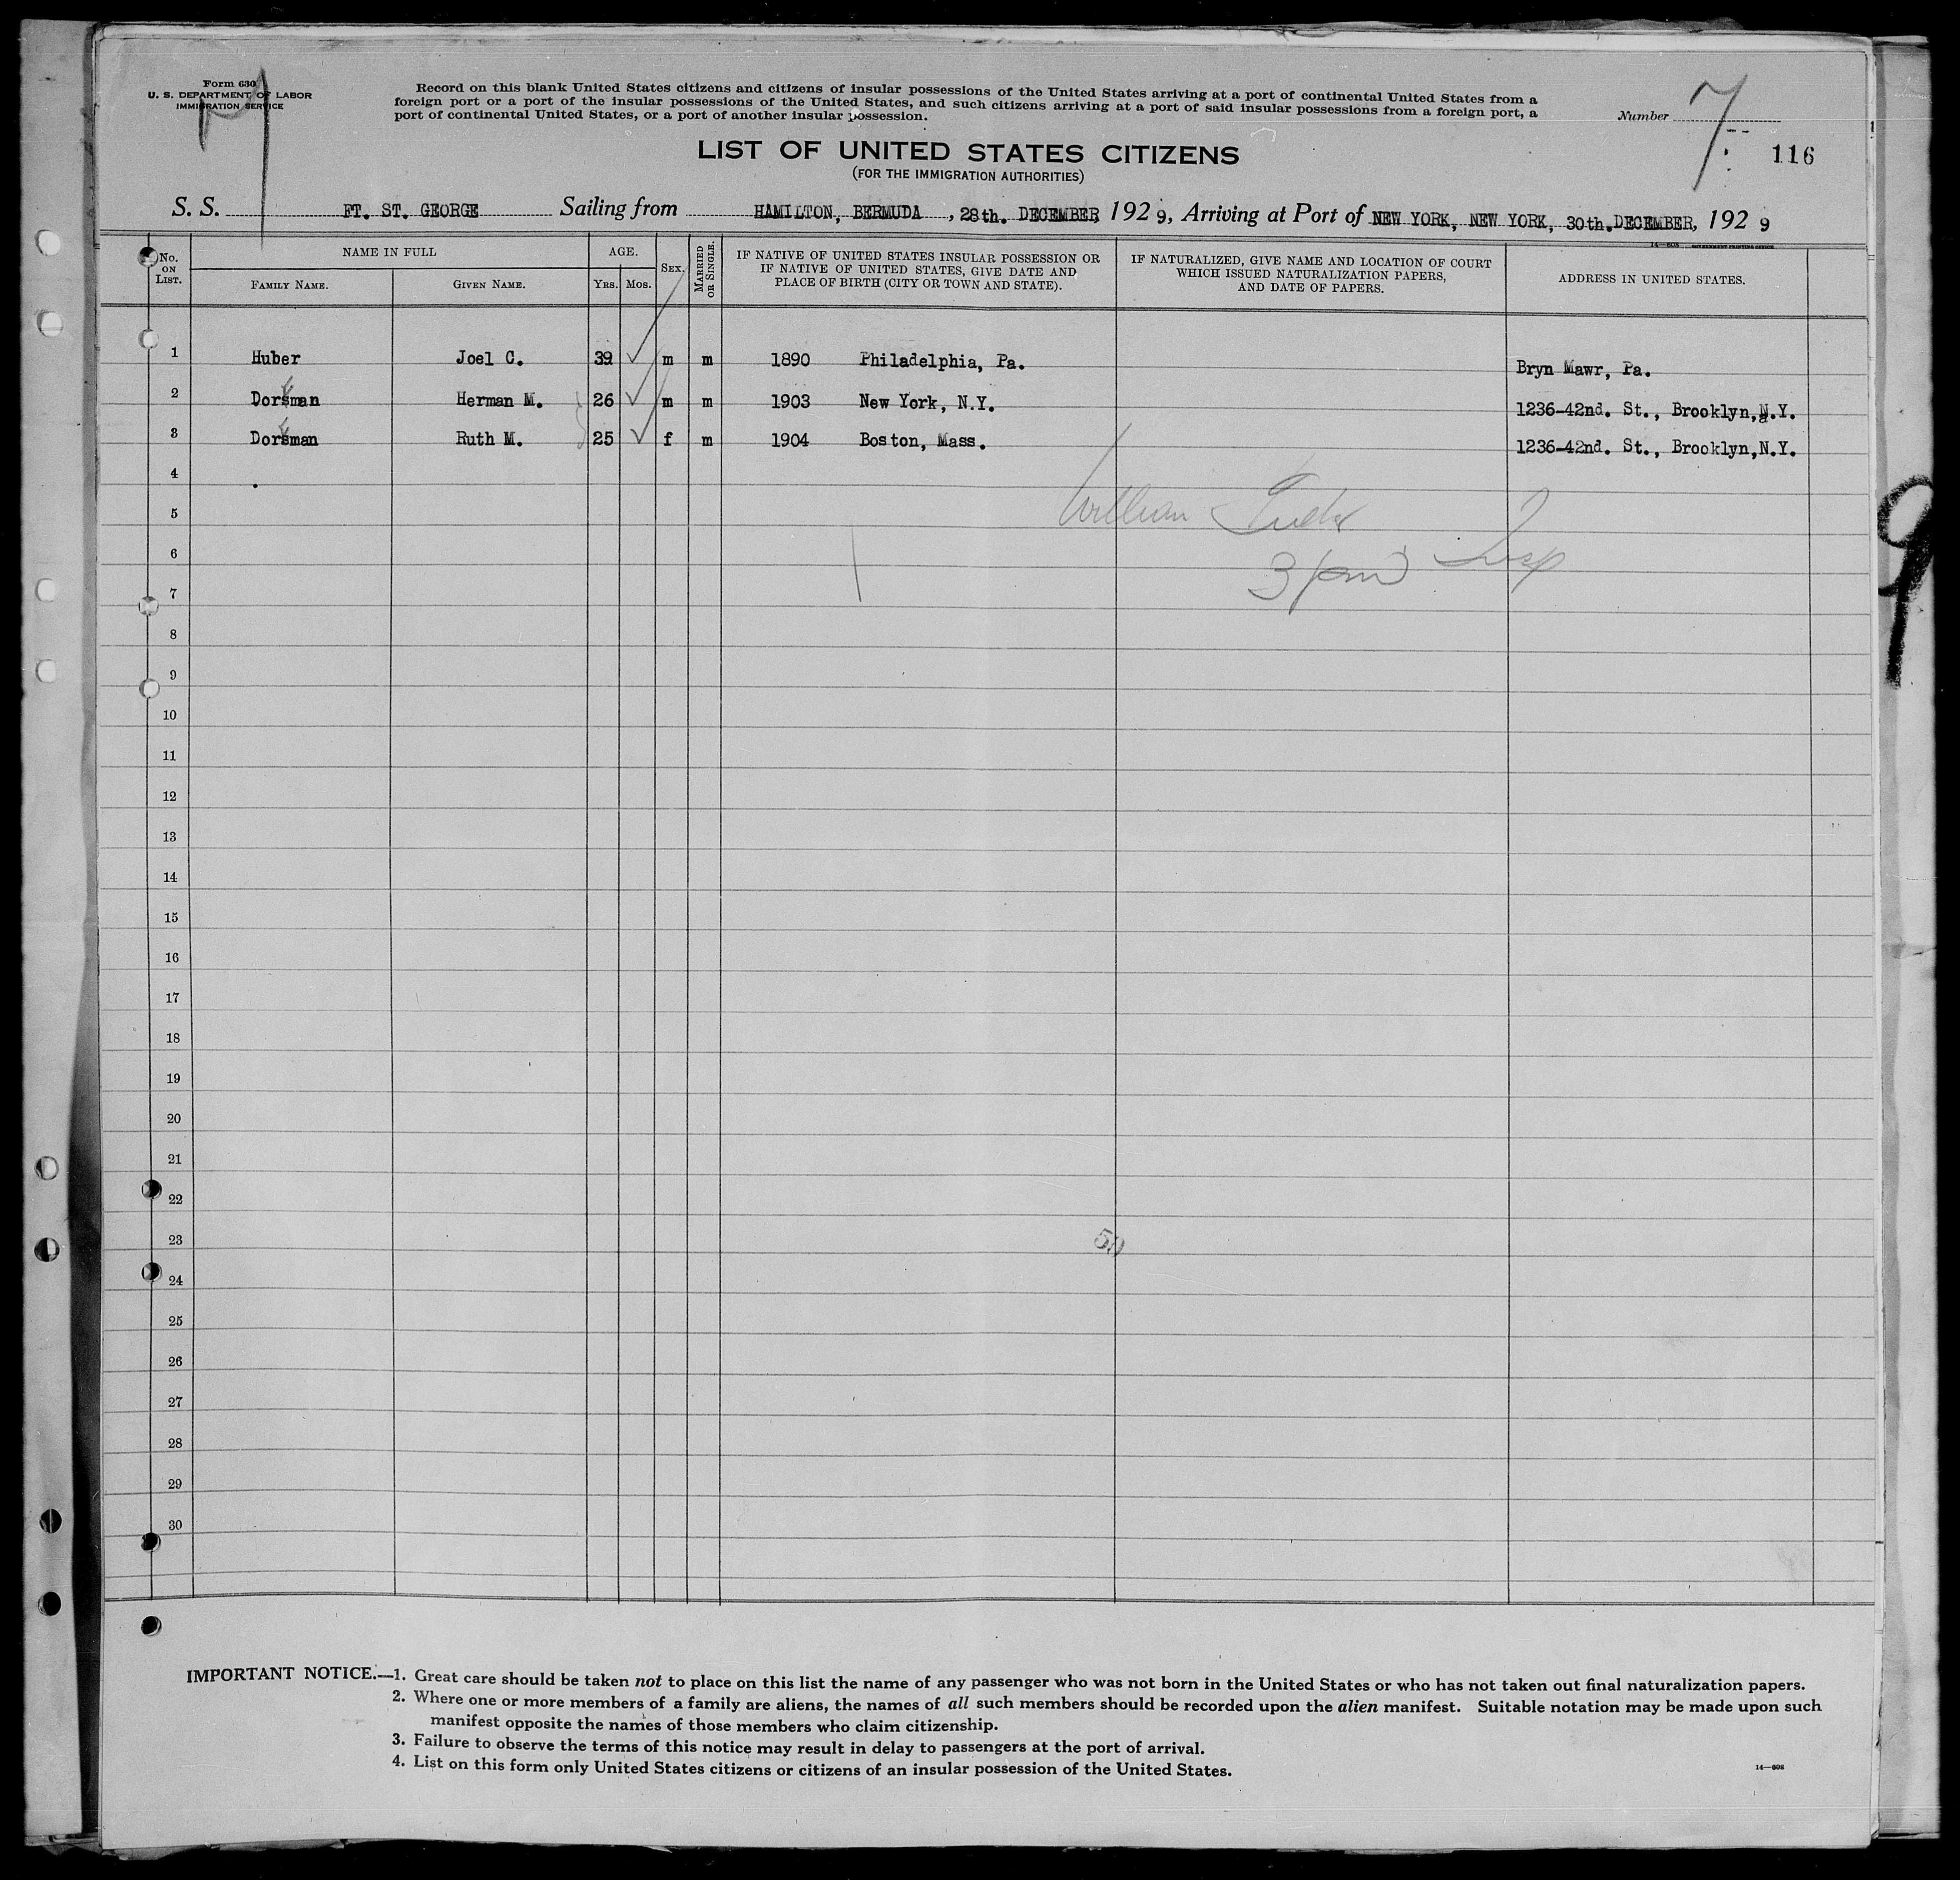 Form 630
U. S. DEPARTMENT OF LABOR
IMMIGRATION SERVICE
Record on this blank United States citizens and citizens of insular possessions of the United States arriving at a port of continental United States from a
foreign port or a port of the insular possessions of the United States, and such citizens arriving at a port of said insular possessions from a foreign port, a
port of continental United States, or a port of another insular possession.
Number 7
116
LIST OF UNITED STATES CITIZENS
(FOR THE IMMIGRATION AUTHORITIES)
S. S. FT. ST. GEORGE Sailing from HAMILTON, BERMUDA, 28th. DECEMBER, 1929, Arriving at Port of NEW YORK, NEW YORK, 30th. DECEMBER, 1929
14—608 GOVERNMENT PRINTING OFFICE
No. ON LIST. NAME IN FULL AGE. SEX. MARRIED OR SINGLE. IF NATIVE OF UNITED STATES INSULAR POSSESSION OR IF NATIVE OF UNITED STATES, GIVE DATE AND PLACE OF BIRTH (CITY OR TOWN AND STATE). IF NATURALIZED, GIVE NAME AND LOCATION OF COURT WHICH ISSUED NATURALIZATION PAPERS, AND DATE OF PAPERS. ADDRESS IN UNITED STATES.
FAMILY NAME. GIVEN NAME. YRS. MOS.
1 Huber Joel C. 39 ✓ m m 1890 Philadelphia, Pa. Bryn Mawr, Pa.
2 Dorsman Herman M. 26 ✓ m m 1903 New York, N.Y. 1236-42nd. St., Brooklyn, N.Y.
3 Dorsman Ruth M. 25 ✓ f m 1904 Boston, Mass. 1236-42nd. St., Brooklyn, N.Y.
4
5 William
6 3 Insp
7
8
9
10
11
12
13
14
15
16
17
18
19
20
21
22
23
50
24
25
26
27
28
29
30
9
IMPORTANT NOTICE.—1. Great care should be taken not to place on this list the name of any passenger who was not born in the United States or who has not taken out final naturalization papers.
2. Where one or more members of a family are aliens, the names of all such members should be recorded upon the alien manifest. Suitable notation may be made upon such
manifest opposite the names of those members who claim citizenship.
3. Failure to observe the terms of this notice may result in delay to passengers at the port of arrival.
4. List on this form only United States citizens or citizens of an insular possession of the United States.
14—608